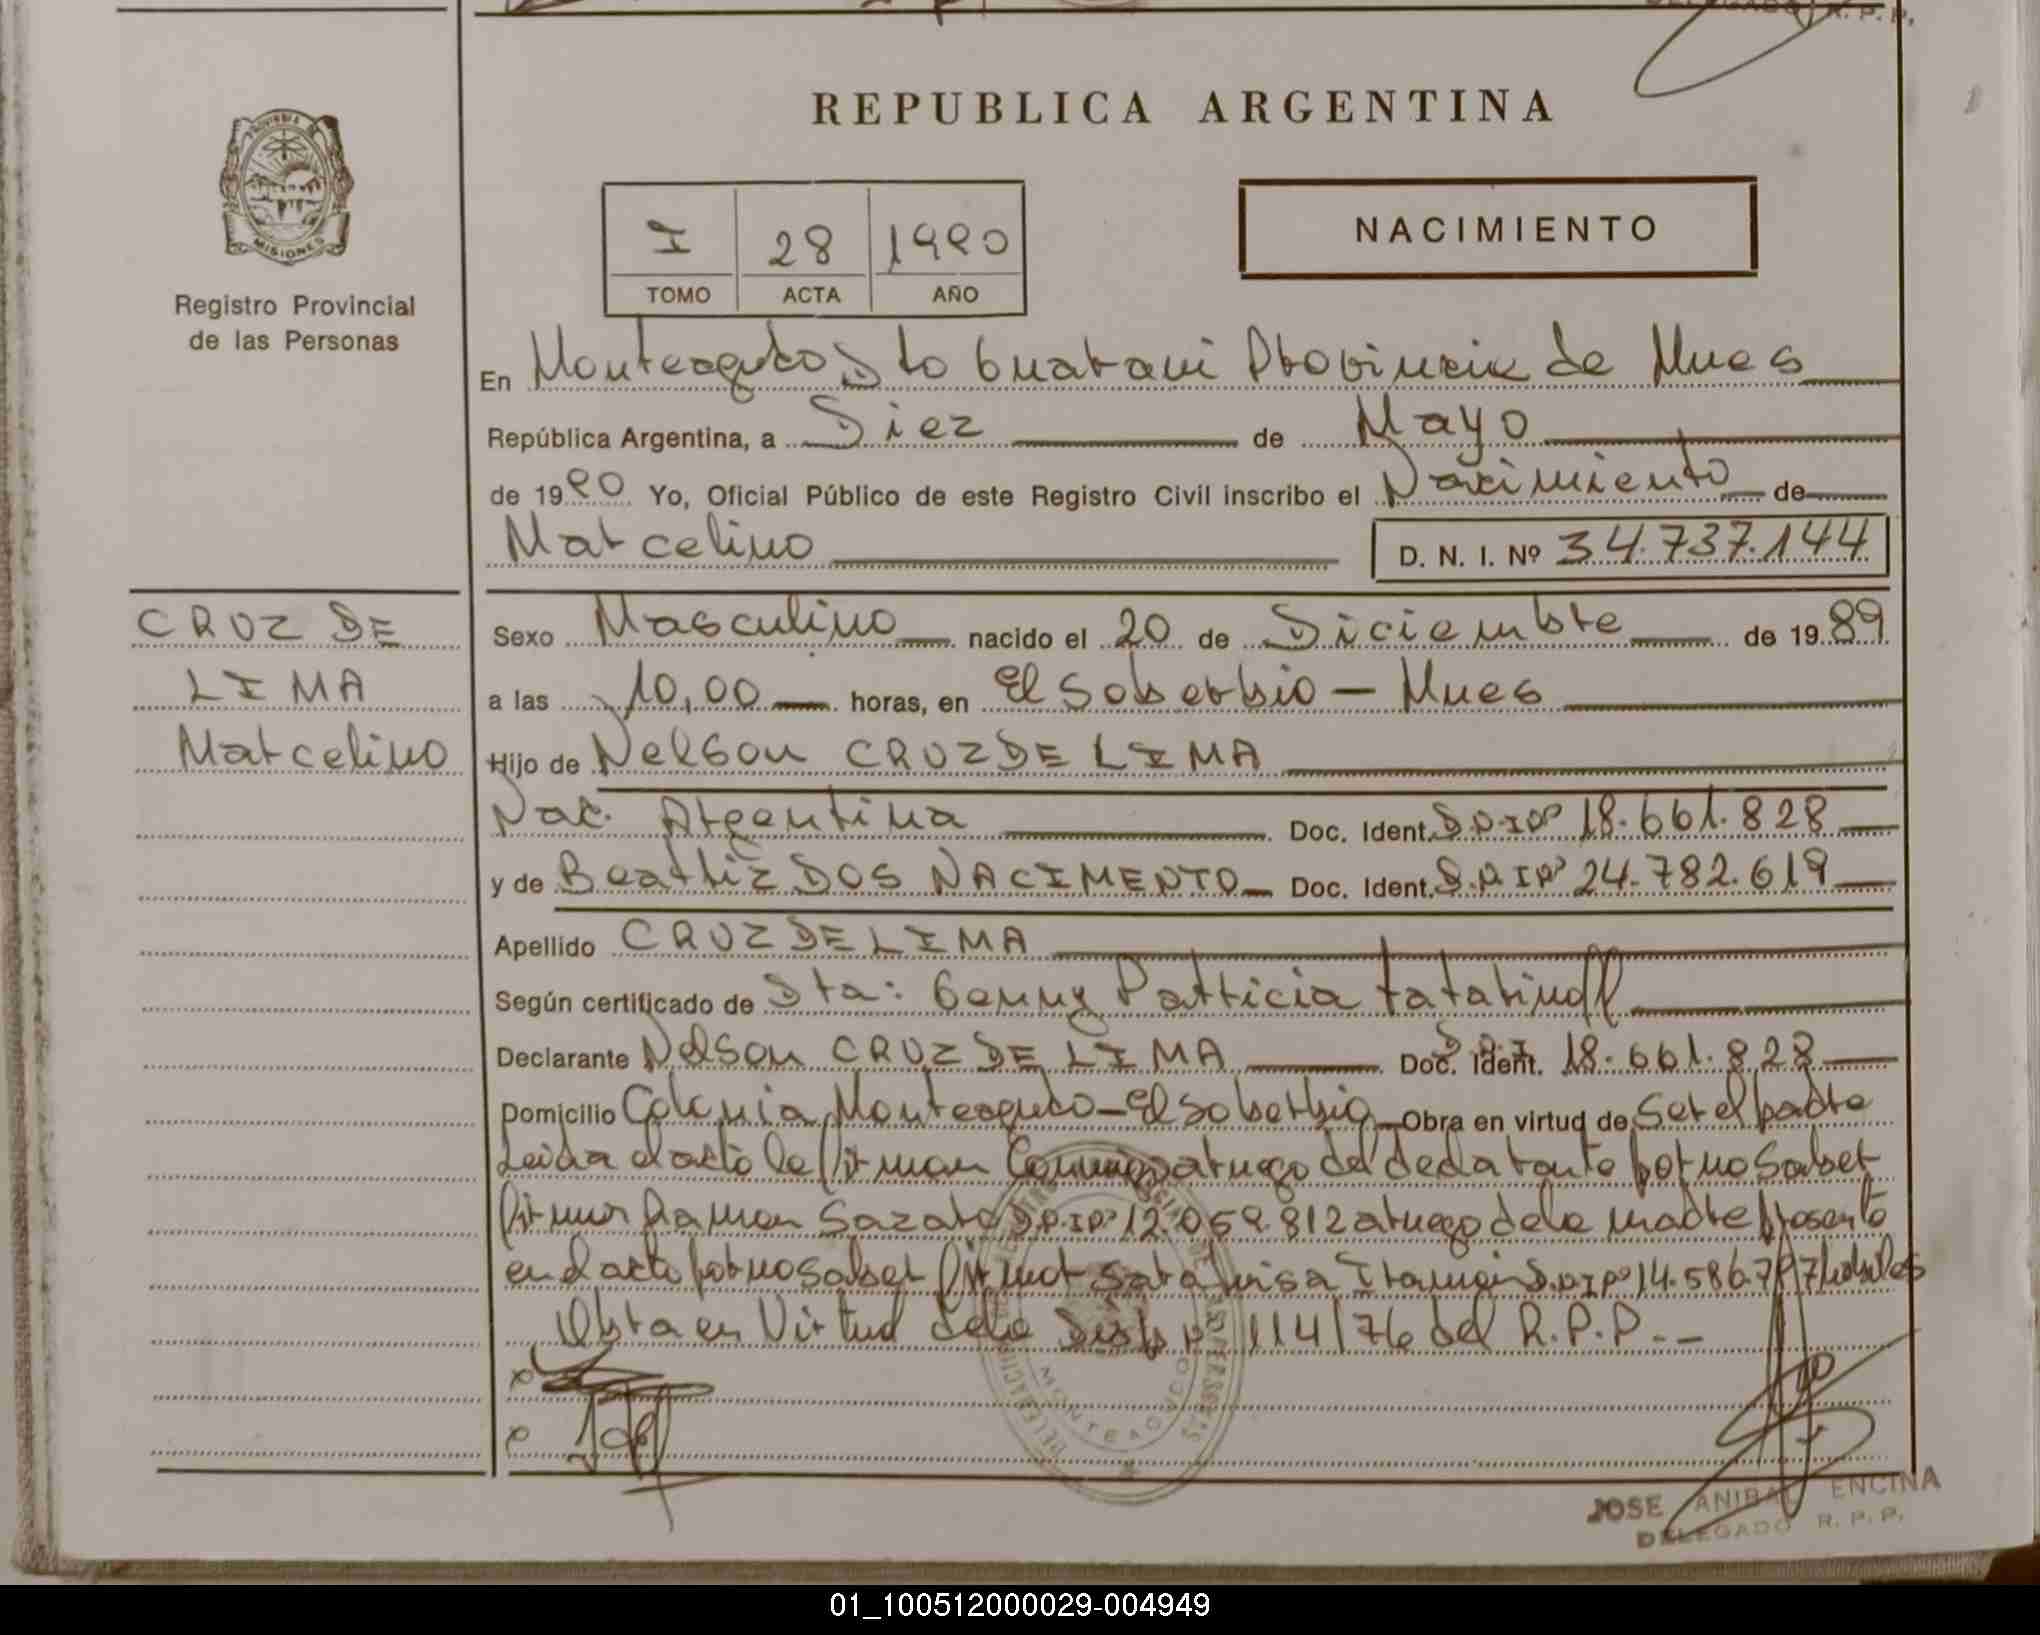 REPUBLICA ARGENTINA
PROVINCIA DE
MISIONES
Registro Provincial
de las Personas
I 28 1990
TOMO ACTA AÑO
NACIMIENTO
En Monteagudo Dto Guarani Provincia de Mnes
República Argentina, a Diez de Mayo
de 1990 Yo, Oficial Público de este Registro Civil inscribo el Nacimiento de
Marcelino D. N. I. Nº 34.737.144
CRUZ DE
LIMA
Marcelino
Sexo Masculino nacido el 20 de Diciembre de 1989
a las 10,00 horas, en El Soberbio - Mnes
Hijo de Nelson CRUZ DE LIMA
Nac. Argentina Doc. Ident. D.N.I Nº 18.661.828
y de Beatriz DOS NACIMENTO Doc. Ident. D.N.I Nº 24.782.619
Apellido CRUZ DE LIMA
Según certificado de Dta: Genny Patricia
Declarante Nelson CRUZ DE LIMA Doc. Ident. D.N.I 18.661.828
Domicilio Colonia Monteagudo - El Soberbio Obra en virtud de Ser el padre
Leida el acta la firman Conmigo a ruego del declarante por no Saber
firmar Ramon D.N.I Nº 12.059.812 a ruego de la madre presente
en el acto por no Saber firmar D.N.I Nº 14.586.787 habiles
Obra en Virtud de la Disp Nº 114/76 del R.P.P.-
MONTEAGUDO
JOSE ANIBAL ENCINA
DELEGADO R. P. P.
01_100512000029-004949